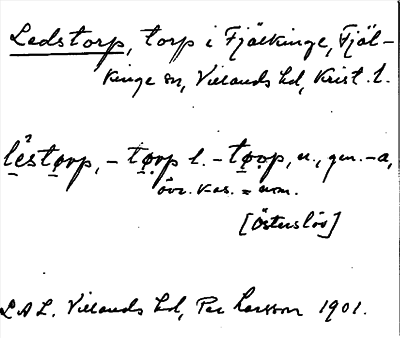 Ledstorp, torp i Fjälkinge, Fjäl-
kinge sn, Villands hd, Krist. l.
lèstørp, - tørp l. - tøp, n., gen. -a,
övr. kas. = nom.
[Österslöv]
LAL. Villands hd, Per Larsson 1901.